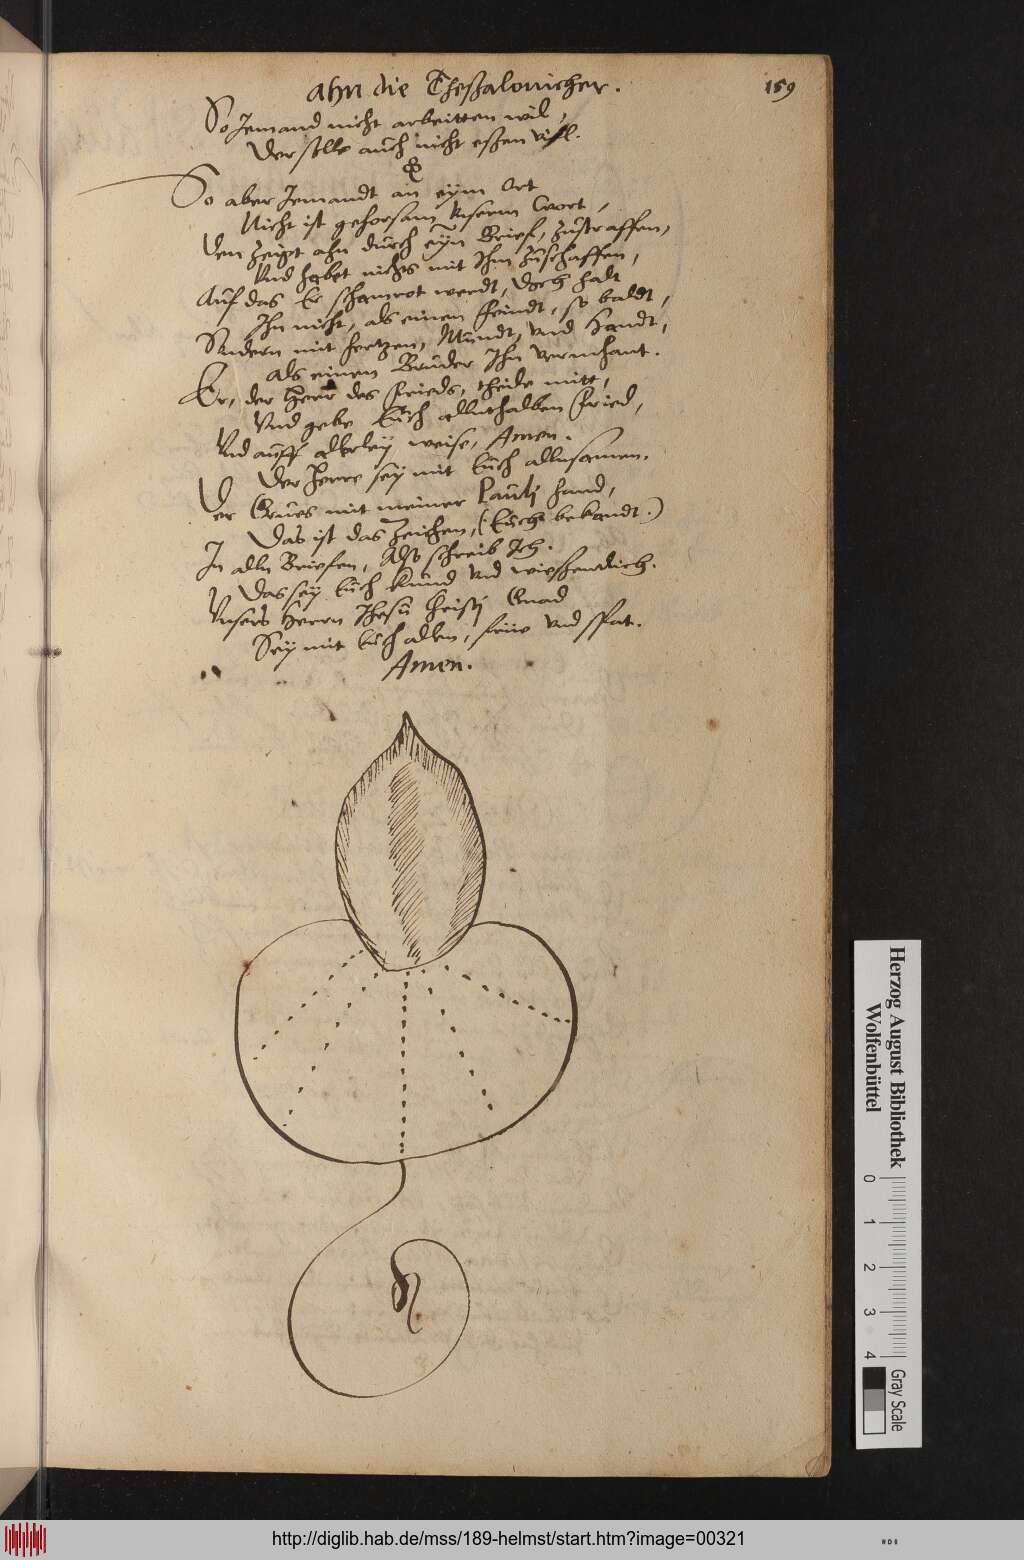 ahn die Theßalonicher.
159
So Jemand nicht arbeitten wil,
Der solle auch nicht eßen viel.
So aber Jemandt an eÿm Ort
Nicht ist gehorsam Unserm Wort,
Den zeigt ahn durch eÿn Brieff, zustraffen,
Und habet nichts mit Ihm zuschaffen,
Auf das Er schamrot werdt, doch halt
Ihn nicht, als einen feindt, so baldt,
Sondern mit hertzen, Mundt, und Handt,
Als einen Bruder Ihn vermhant.
Er, der Herr des frieds, theile mitt,
Und gebe Euch allenthalben fried,
Und auff allerleÿ weise, Amen.
Der Herre seÿ mit Euch allensamen.
Der Grues mit meiner Pauli hand,
Das ist das Zeichen, (Euch bekandt.)
In alln Briefen, Also schreib Ich.
Das seÿ Euch kund und wießendlich.
Unsers Herrn Jhesu Christj Gnad
Seÿ mit Euch allen, frue und spat.
Amen.
Herzog August Bibliothek
Wolfenbüttel
0 1 2 3 4
Gray Scale
http://diglib.hab.de/mss/189-helmst/start.htm?image=00321